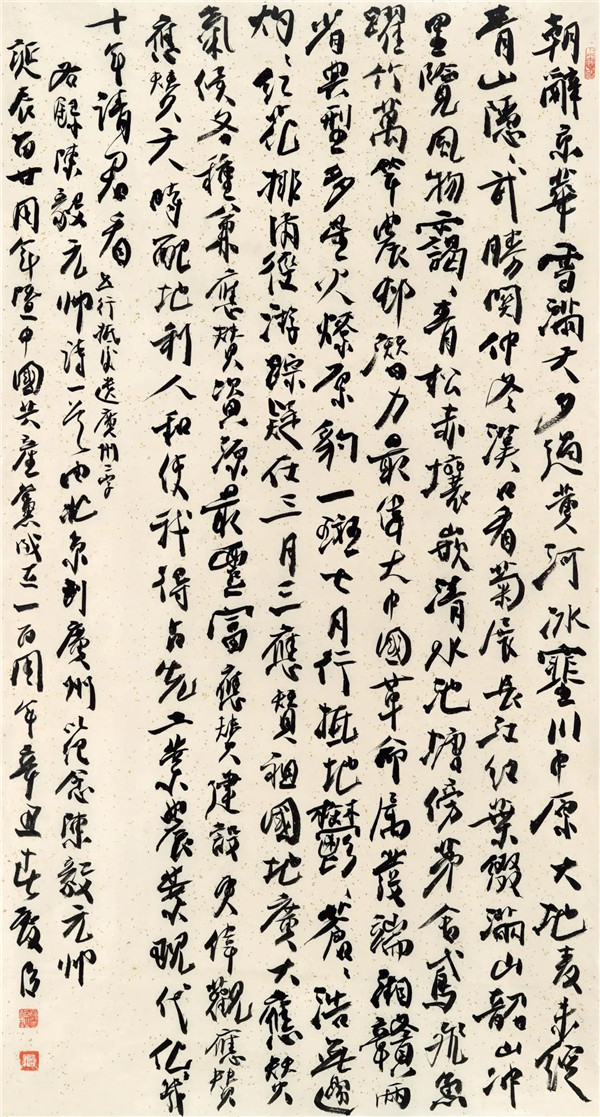 朝辭京華雪滿天夕過黃河冰塞川中原大地麥未綻
青山隱隱武勝關仲冬漢口看菊展長江紅葉綴滿山韶山冲
里覽風物靄靄青松赤壤嵌清水池塘傍茅舍鳶飛魚
躍竹萬竿農邨潛力最偉大中國革命属發端湘贛兩
省典型多星火燎原豹一斑七月行抵地鬱鬱蒼蒼浩無邊
灼灼紅花排滿徑游踪疑在三月三應贊祖國地廣大應贊
氣候各種兼應贊資源最豐富應贊建設更偉觀應贊
應贊天時配地利人和使我得占先工業農業現代化幾
十年請君看 五行抵後遺廣州二字
右録陳毅元帥詩一首由北京到廣州以紀念陳毅元帥
誕辰百廿周年暨中國共產黨成立一百周年辛丑春